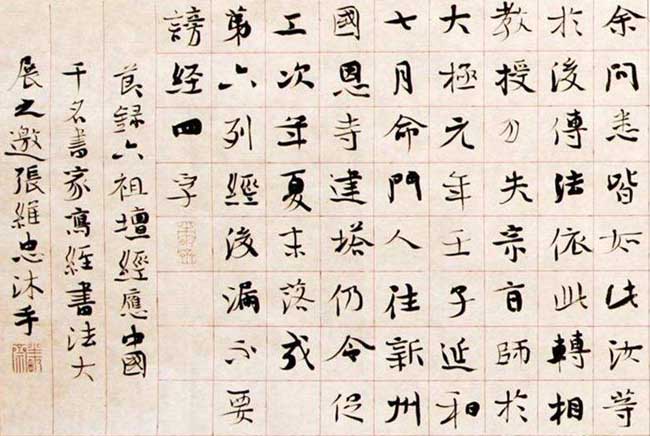 余问悉皆如此汝等
於後傳法依此轉相
教授勿失宗旨師於
大極元年壬子延和
七月命門人往新州
國恩寺建塔仍令促
工次年夏末落成
第六列經後漏不要
謗经四字
録六祖壇經應中國
千名書家寫經書法大
展之邀張維忠沐手